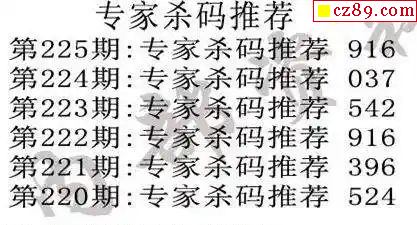 专家杀码推荐
cz89.com
第225期:专家杀码推荐 916
第224期:专家杀码推荐 037
第223期:专家杀码推荐 542
第222期:专家杀码推荐 916
第221期:专家杀码推荐 396
第220期:专家杀码推荐 524